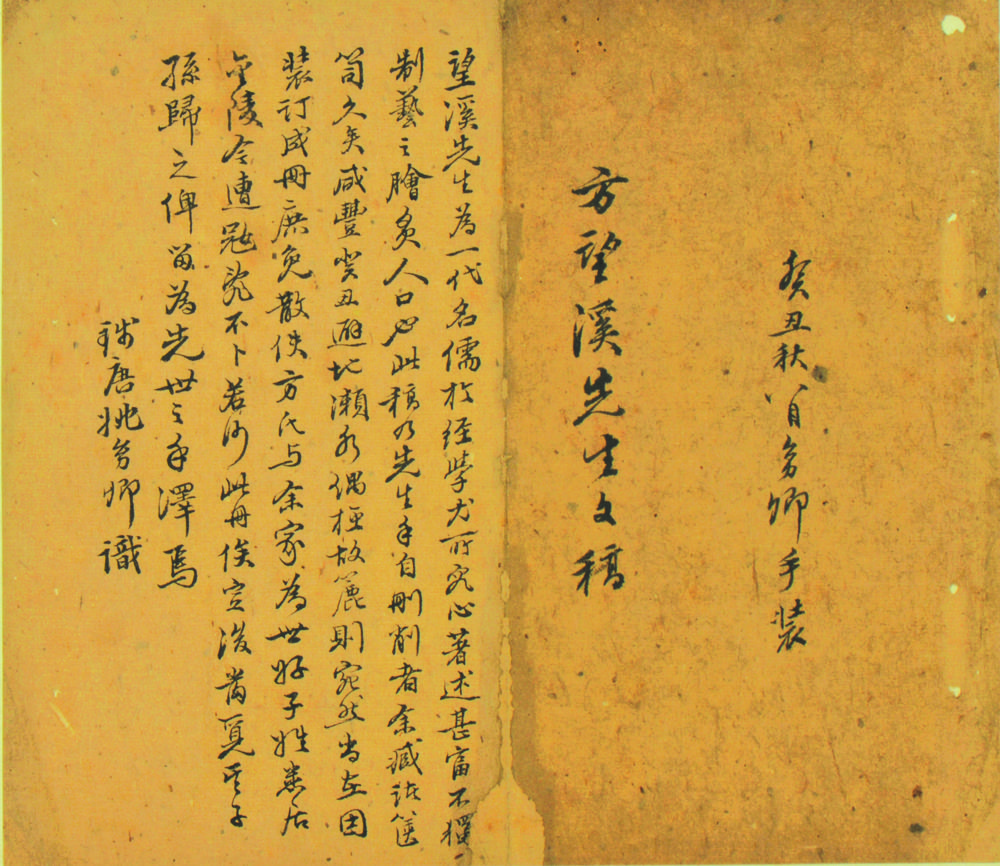 癸丑秋八月多卿手装
方望溪先生文稿
望溪先生為一代名儒於經學尤所究心著述甚富不獨
制藝之膾炙人口也此稿乃先生手自刪削者余藏諸篋
笥久矣咸豐癸丑避地瀨水偶檢故簏則宛然尚在因
装订成冊庶免散佚方氏与余家為世好子姓悉居
金陵今遭寇究不卜若何此冊俟定後當覓其子
孫歸之俾留為先世之手澤焉
錢唐姚多卿識